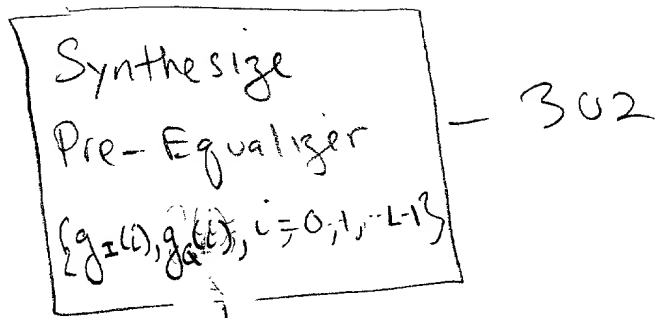 Synthesize
Pre-Equalizer — 302
{g_I(i), g_Q(i), i=0,1,..L-1}